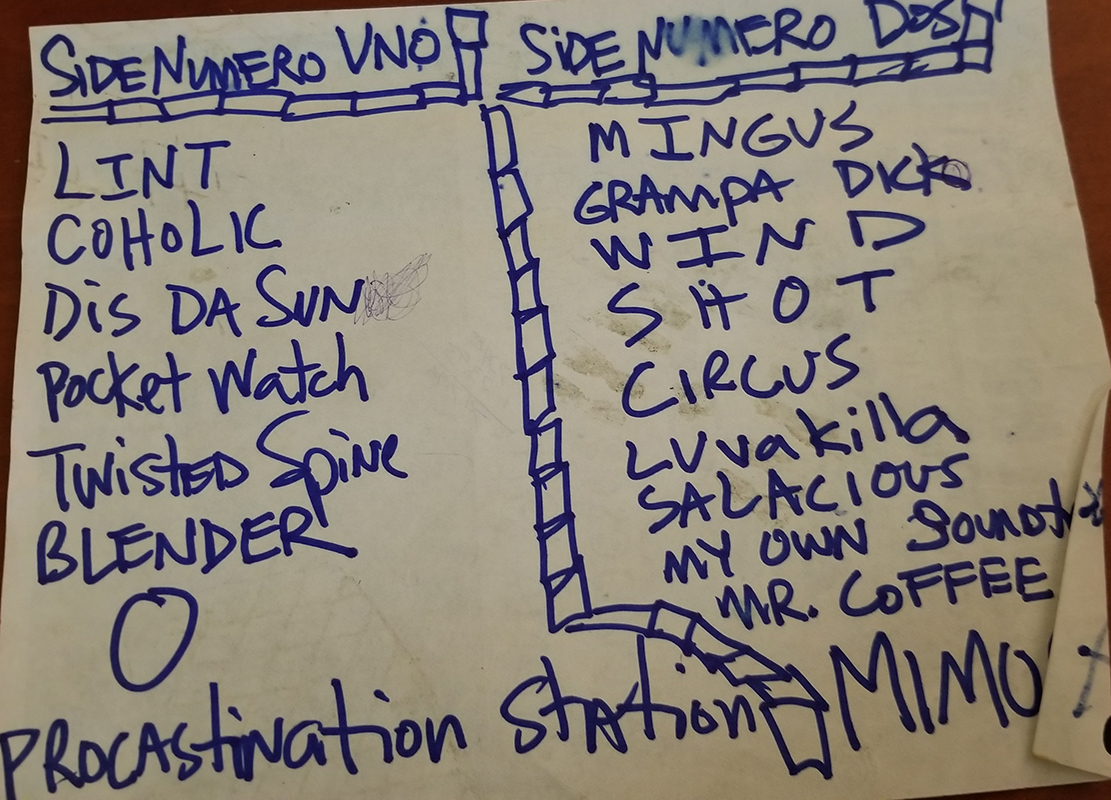 SIDE NUMERO UNO
LINT
COHOLIC
DIS DA SUN
Pocket Watch
TWISTED Spine
BLENDER
O
SIDE NUMERO DOS
MINGUS
GRAMPA DICK
WIND
SHOT
CIRCUS
LUVakilla
SALACIOUS
MY OWN
MR. COFFEE
PROCAStination StAtion MIMO